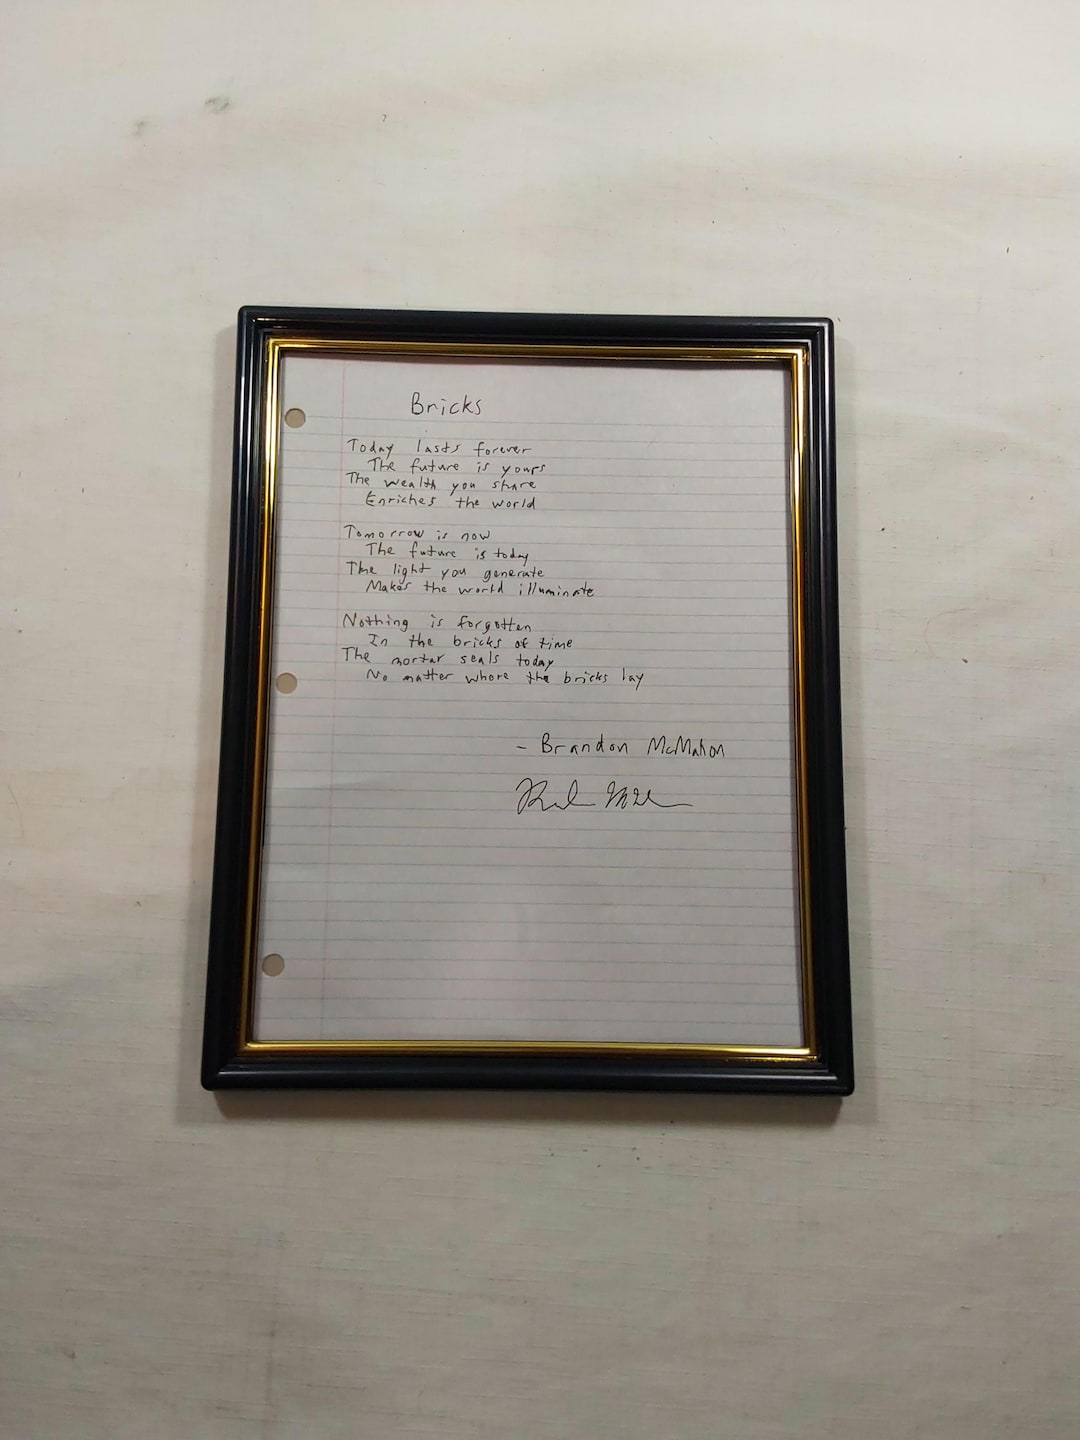 Bricks
Today lasts forever
The future is yours
The wealth you share
Enriches the world
Tomorrow is now
The future is today
The light you generate
Makes the world illuminate
Nothing is forgotten
In the bricks of time
The mortar seals today
No matter where the bricks lay
- Brandon McMahon